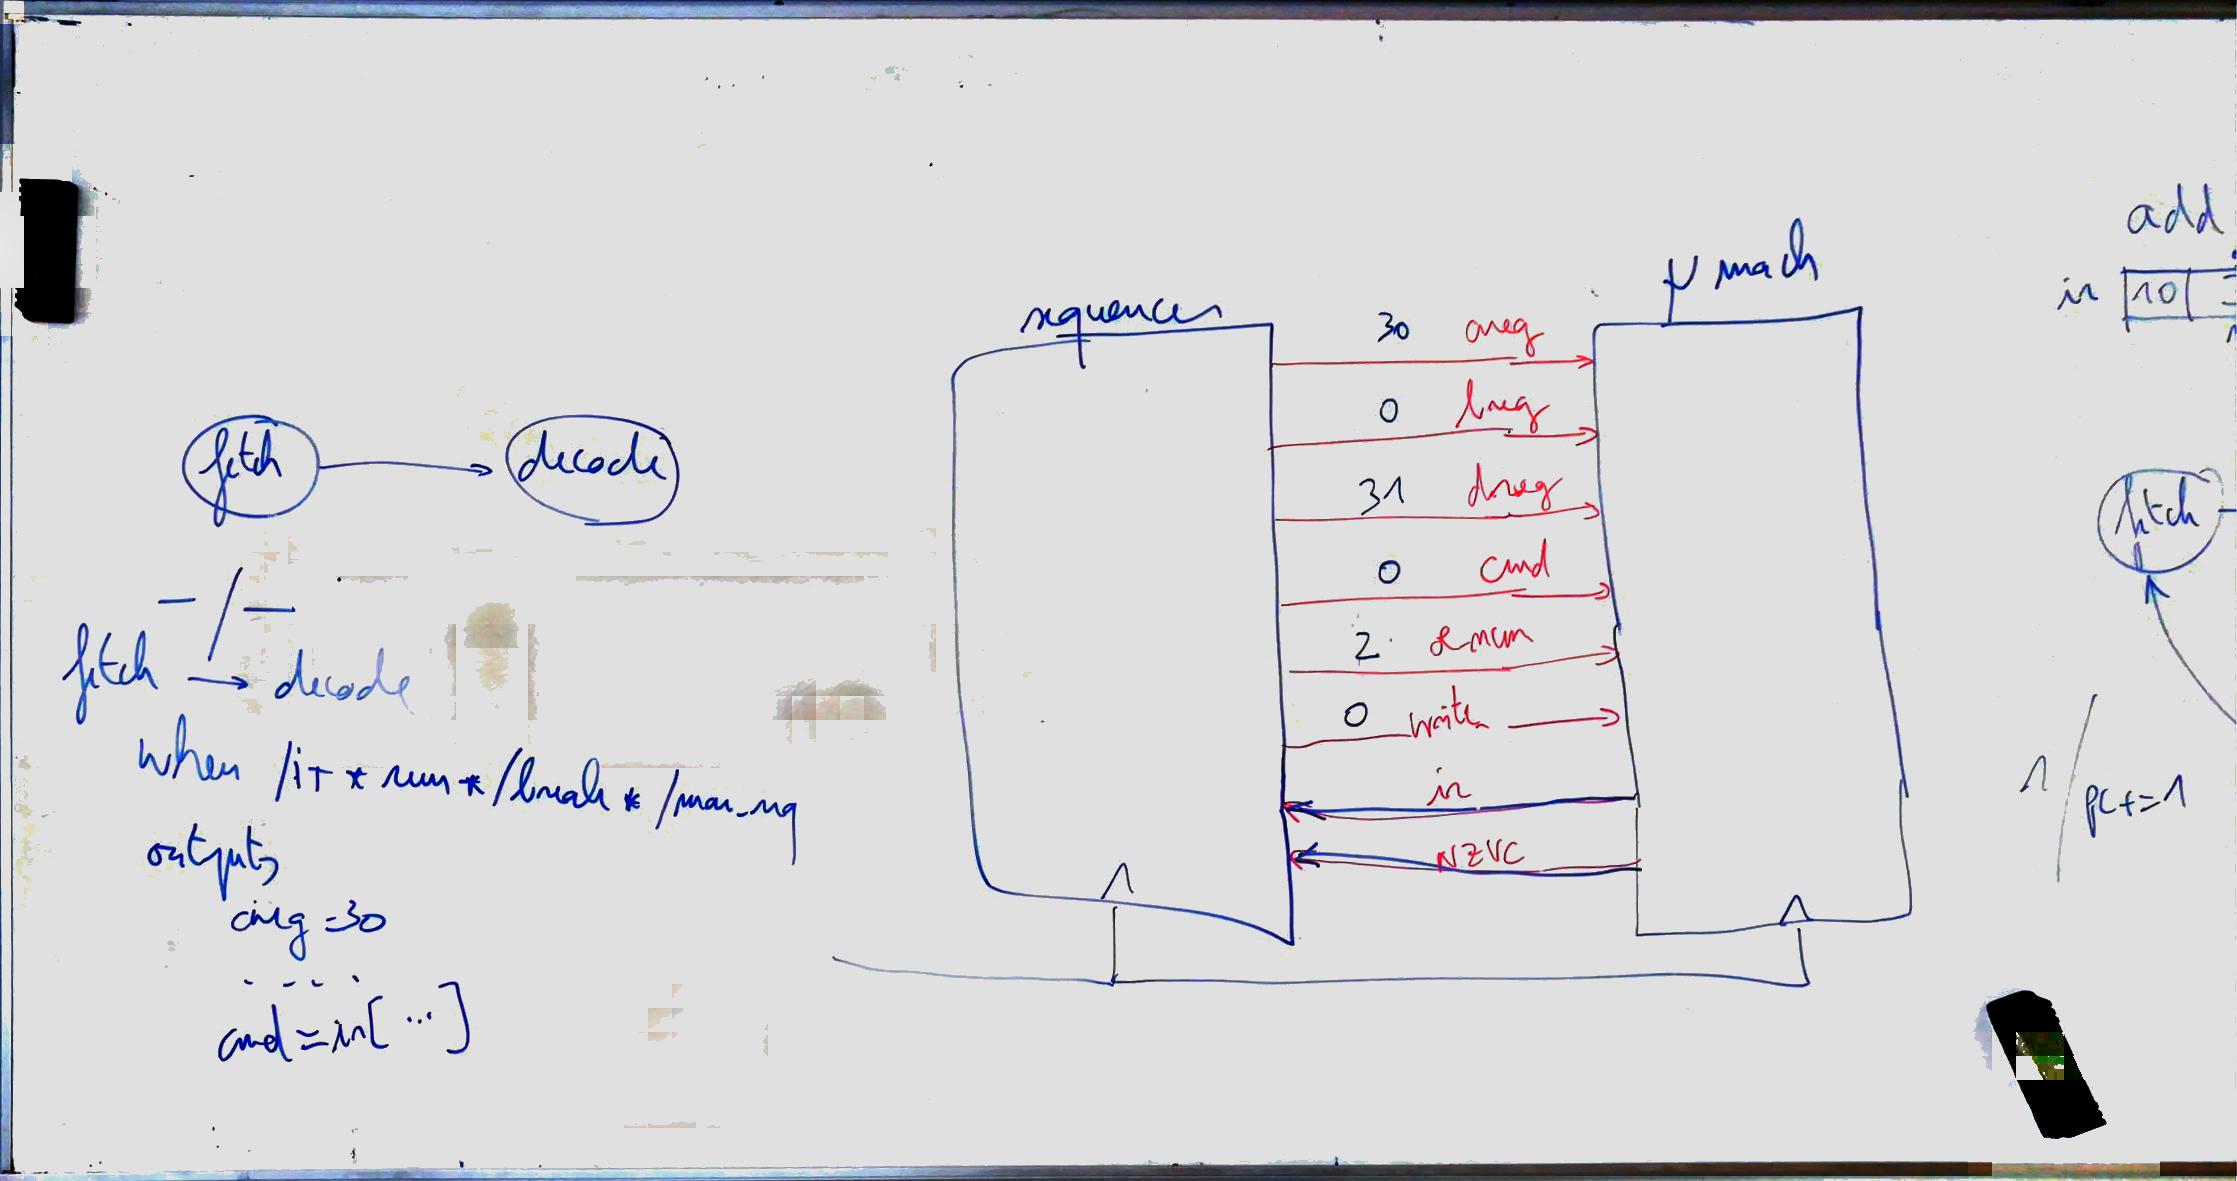 fetch → decode
— / —
fetch → decode
when /it * run * /break * /mon_rq
outputs
areg = 30
....
cmd = ir[...]
sequencer
μmach
30 areg
0 breg
31 dreg
0 cmd
2 oe_num
0 write
ir
NZVC
add
ir 10
fetch
1 / pc+=1